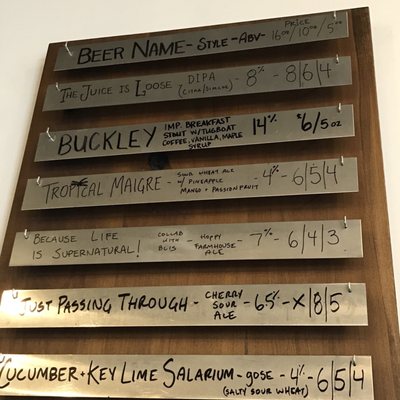 BEER NAME - STYLE - ABV - PRICE 16oz/10oz/5oz
THE JUICE IS LOOSE DIPA (CITRA/SIMCOE) - 8% - 8|6|4
BUCKLEY IMP. BREAKFAST STOUT W/TUGBOAT COFFEE, VANILLA, MAPLE SYRUP 14% $6/5oz
TROPICAL MAIGRE - SOUR WHEAT ALE W/ PINEAPPLE MANGO + PASSIONFRUIT - 4% - 6|5|4
BECAUSE LIFE IS SUPERNATURAL! COLLAB WITH BLIS - HOPPY FARMHOUSE ALE - 7% - 6|4|3
JUST PASSING THROUGH - CHERRY SOUR ALE - 6.5% - X|8|5
CUCUMBER + KEY LIME SALARIUM - GOSE - 4% - 6|5|4
(SALTY SOUR WHEAT)